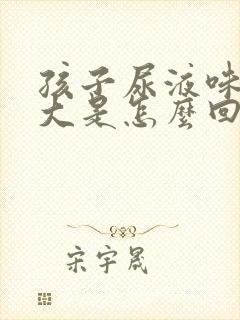 孩子尿液味
大是怎麼回
宋宇晟